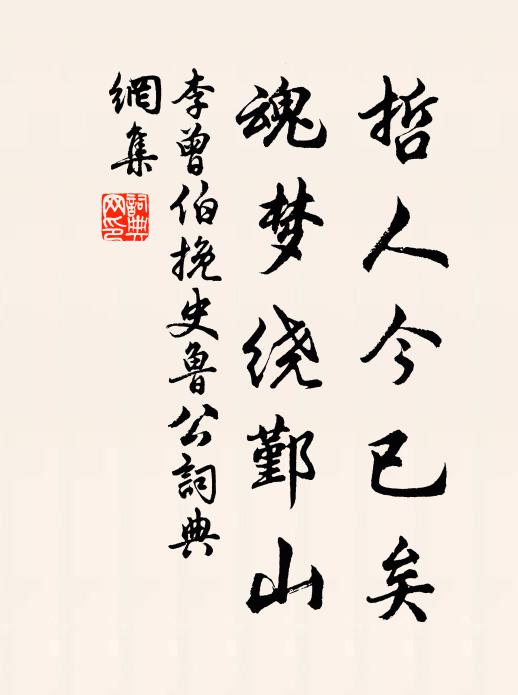 哲人今已矣
魂梦绕鄞山
李曾伯挽史鲁公詞典
網集
詞典
网印